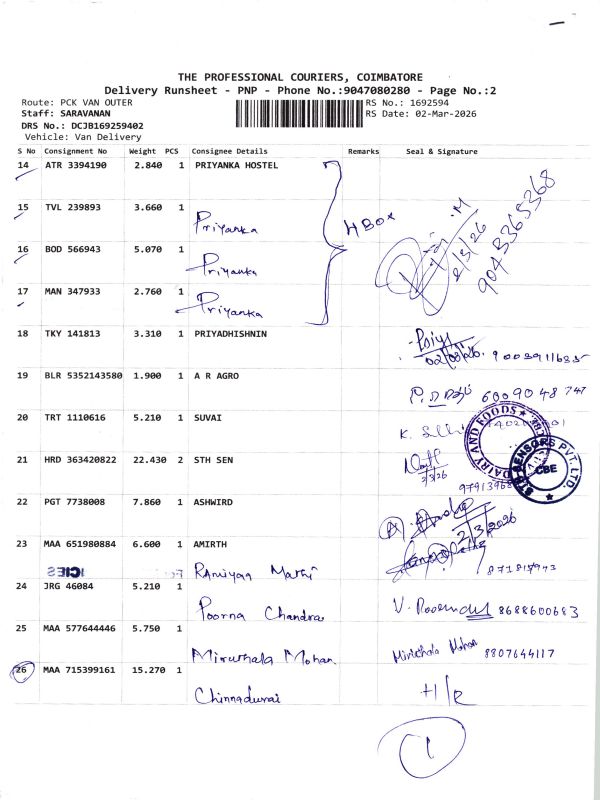 THE PROFESSIONAL COURIERS, COIMBATORE
Delivery Runsheet - PNP - Phone No.:9047080280 - Page No.:2
Route: PCK VAN OUTER RS No.: 1692594
Staff: SARAVANAN RS Date: 02-Mar-2026
DRS No.: DCJB169259402
Vehicle: Van Delivery
S No Consignment No Weight PCS Consignee Details Remarks Seal & Signature
14 ATR 3394190 2.840 1 PRIYANKA HOSTEL
15 TVL 239893 3.660 1
Priyanka 4 BOX M 2/3/26 9043365368
16 BOD 566943 5.070 1
Priyanka
17 MAN 347933 2.760 1
Priyanka
18 TKY 141813 3.310 1 PRIYADHISHNIN
Priya
02/03/26. 9003911635
19 BLR 5352143580 1.900 1 A R AGRO
6009048747
20 TRT 1110616 5.210 1 SUVAI
K.
DAIRY AND FOODS
21 HRD 363420822 22.430 2 STH SEN
2/3/26
SENSORS PVT. LTD.
CBE
22 PGT 7738008 7.860 1 ASHWIRD
2/3/2026
23 MAA 651980884 6.600 1 AMIRTH
Ramiyaa Mathi
24 JRG 46084 5.210 1
Poorna Chandra V. 8688600683
25 MAA 577644446 5.750 1
Miruthala Mohan Miruthala Mohan 8807644117
26 MAA 715399161 15.270 1
Chinnadurai H/R
1